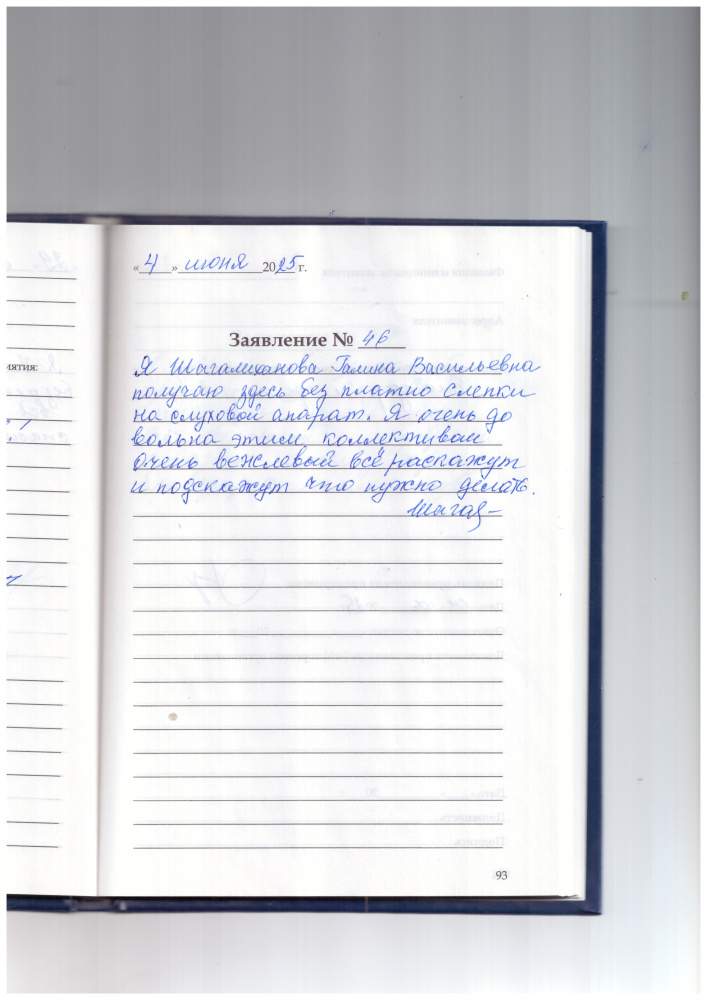 «4» июня 2025 г.
Заявление № 46
Я Шагалиханова Галина Васильевна
получаю здесь без платно слепки
на слуховой апарат. Я очень до
вольна этим коллективом
очень вежлевый всё раскажут
и подскажут что нужно делать.
иятия:
93